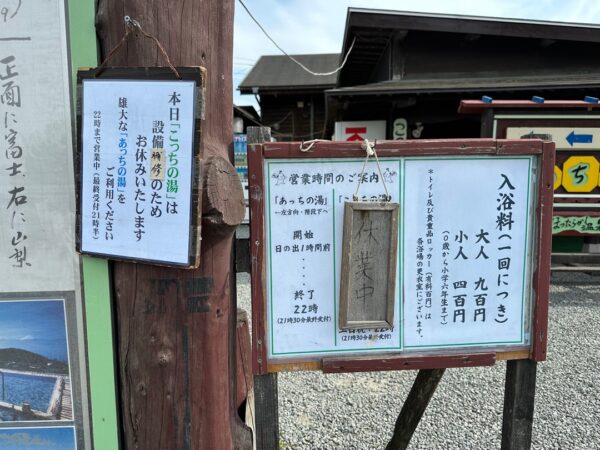 正面に富士、右に山梨
本日「こっちの湯」は
設備補修のため
お休みいたします
雄大な「あっちの湯」を
ご利用ください
22時まで営業中(最終受付21時半)
営業時間のご案内
「あっちの湯」
←左方向・階段下へ
開始
日の出1時間前
終了
22時
(21時30分最終受付)
「こっちの湯」
休業中
22時
(21時30分最終受付)
入浴料(一回につき)
大人 九百円
小人 四百円
(0歳から小学六年生まで)
*トイレ及び貴重品ロッカー(有料百円)は
各浴場の更衣室にございます。
こ
ち